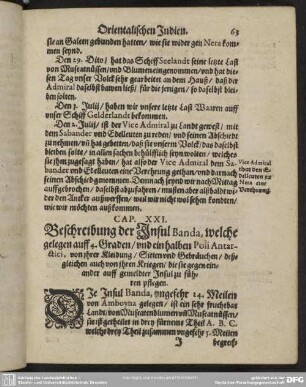 Orientalischen Indien. 63
sie an Galeen gebunden hatten / wie sie wider gen Nera kom-
men seynd.
Den 29. Dito / hat das Schiff Seelandt seine letzte Last
von Muscatnüssen / und Blumen eingenommen / und hat die-
sen Tag unser Volck sehr gearbeitet an dem Hauß / daß der
Admiral daselbst bauwen ließ / für die jenigen / so daselbst blei-
ben solten.
Den 1. Julij / haben wir unsere letzte Last Waaren auff
unser Schiff Gelderlandt bekommen.
Den 2. Julij / ist der Vice Admiral zu Landt gewest / mit
dem Sabander und Edelleuten zu reden / und seinen Abscheidt
zu nehmen / und hat gebetten / daß sie unserm Volck / das daselbst
bleiben solte / in allen sachen behülfflich seyn wolten / welches
sie ihm zugesagt haben / hat also der Vice Admiral dem Sa-
bander und Edelleuten eine Verehrung gethan / und darnach
seinen Abscheidt genommen. Demnach seynd wir nach Mittag
auffgebrochen / daselbst abzufahren / musten aber alsbald wi-
der den Ancker außwerffen / weil wir nicht wol sehen kondten /
wie wir möchten außkommen.
Vice Admiral
thut den E-
delleuten zu
Nera eine
Verehrung.
CAP. XXI.
Beschreibung der Insul Banda, welche
gelegen auff 4. Graden / und ein halben Poli Antar-
ctici, von ihrer Kleidung / Sitten und Gebräuchen / deß-
gleichen auch von ihren Kriegen / die sie gegen ein-
ander auff gemeldter Insul zu füh-
ren pflegen.
Die Insul Banda, ungefehr 24. Meilen
von Amboyna gelegen / ist ein sehr fruchtbar
Landt / von Muscatenblumen und Muscatnüssen /
sie ist getheilet in drey fürneme Theil A. B. C.
welche drey Theil zusammen ungefehr 5. Meilen
I begreif-